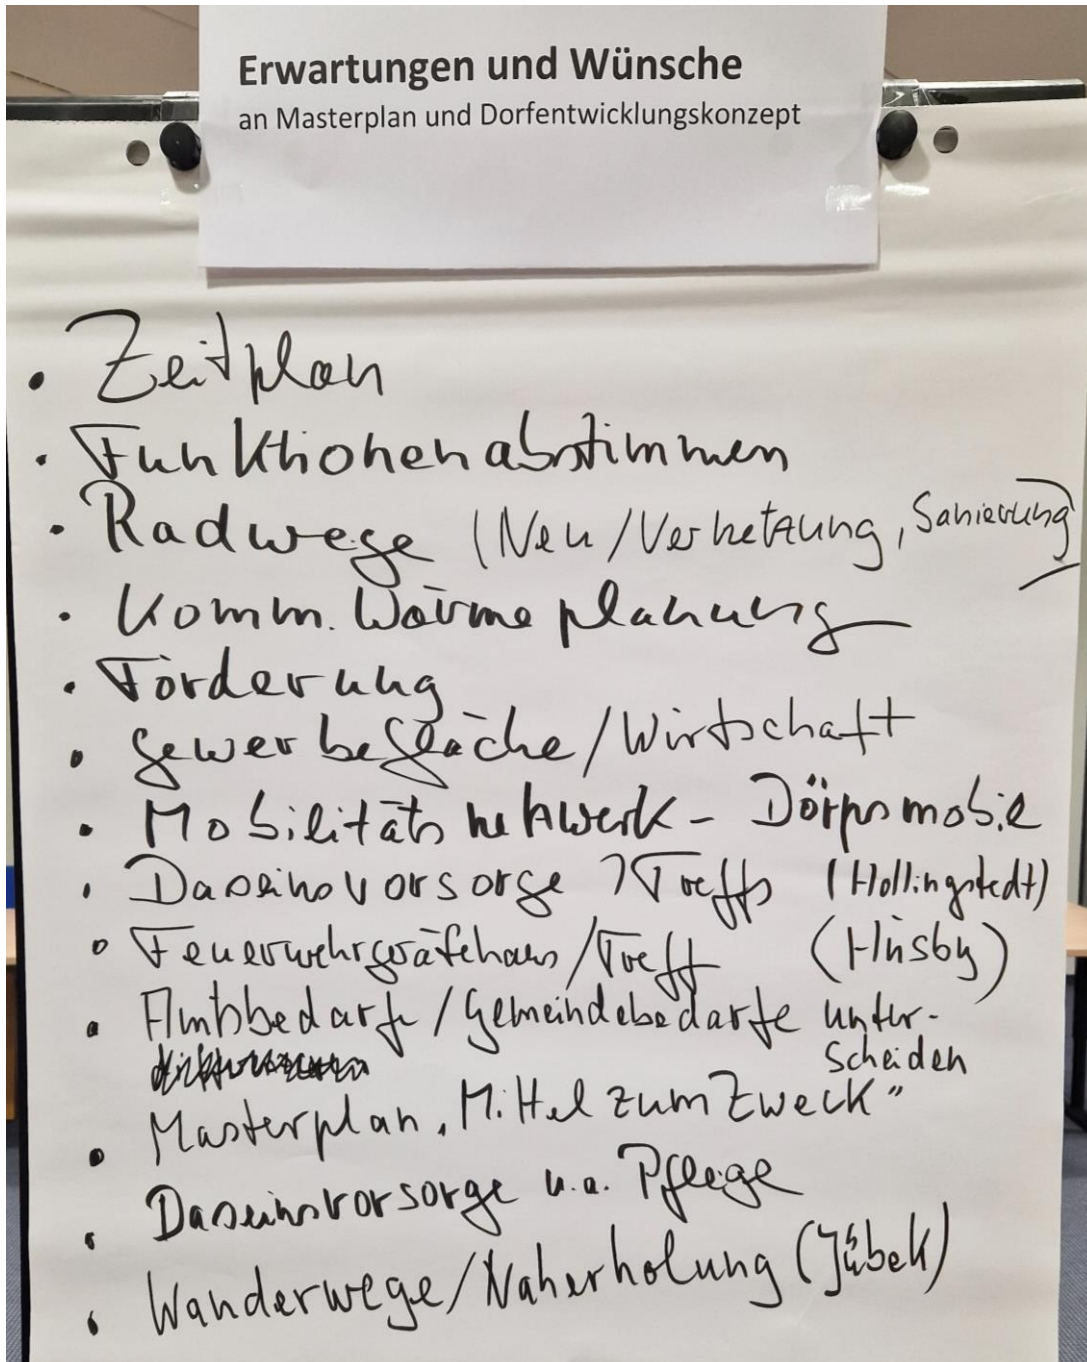 Erwartungen und Wünsche
an Masterplan und Dorfentwicklungskonzept
• Zeitplan
• Funktionen abstimmen
• Radwege (Neu/Vernetzung, Sanierung)
• Komm. Wärmeplanung
• Förderung
• Gewerbefläche/Wirtschaft
• Mobilitätsnetzwerk - Dörpsmobil
• Daseinsvorsorge / Treffs (Hollingstedt)
• Feuerwehrgerätehaus/Treff (Hüsby)
• Amtsbedarfe/Gemeindebedarfe unter-
scheiden
• Masterplan „Mittel zum Zweck"
• Daseinsvorsorge u.a. Pflege
• Wanderwege/Naherholung (Jübek)